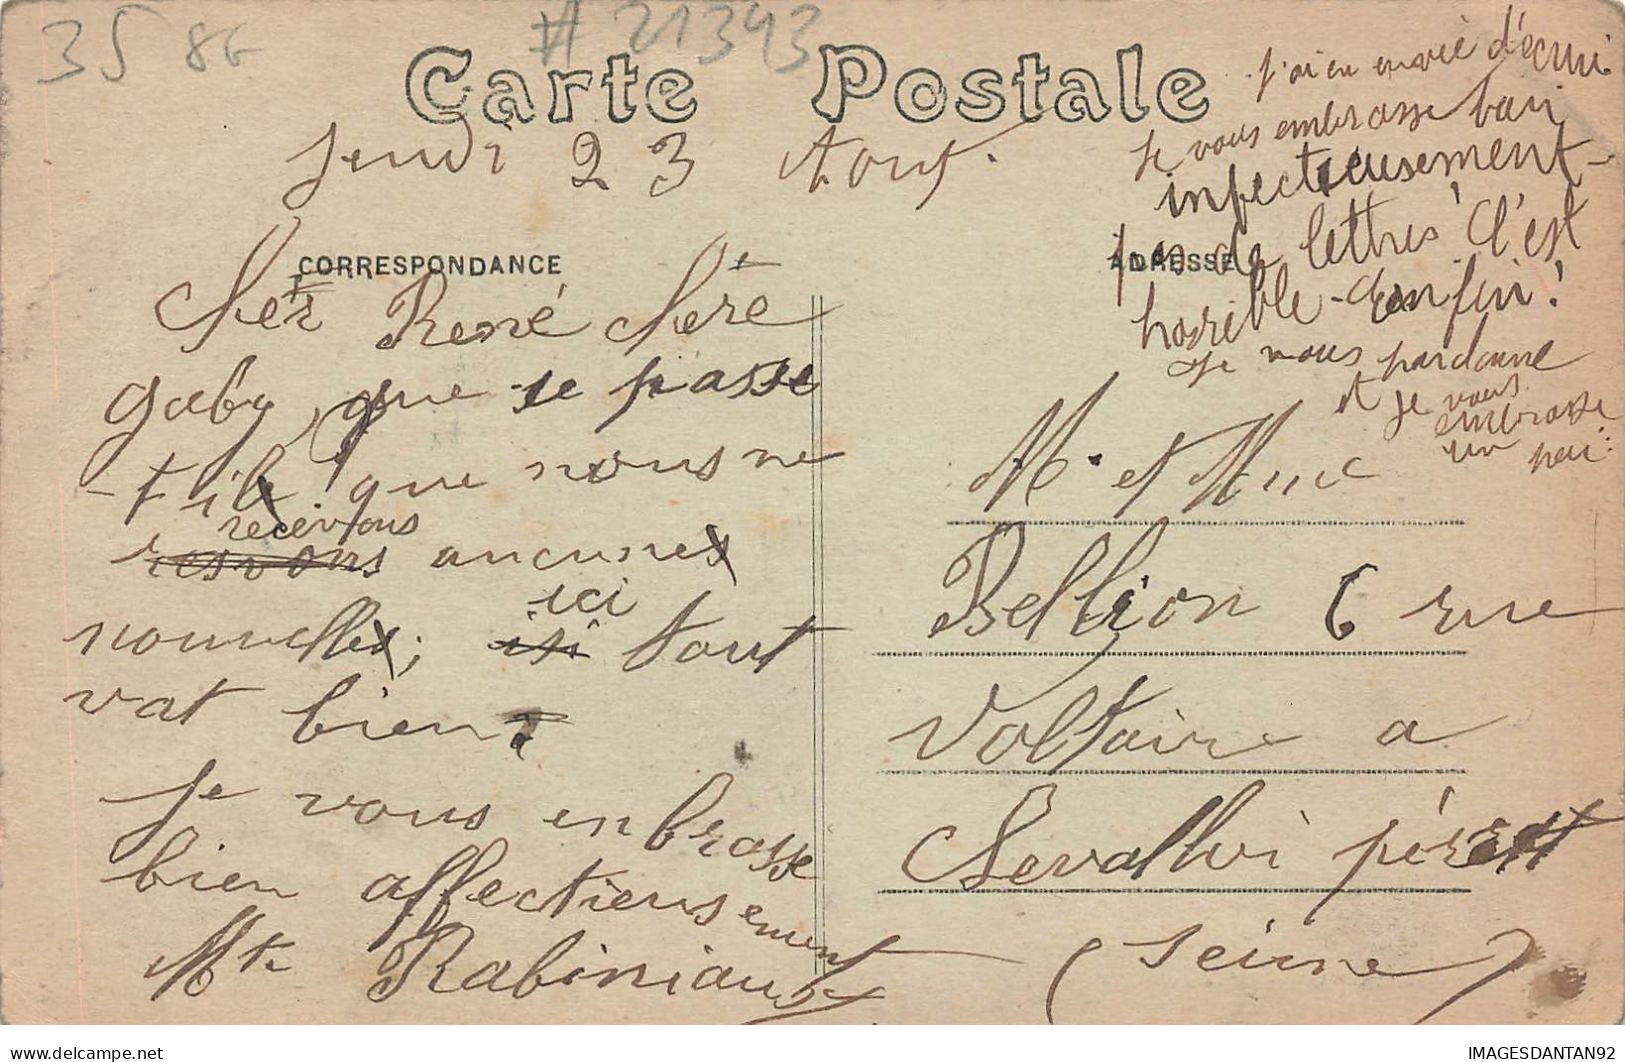 35 86
# 21343
Carte Postale
jeudi 23 Aout.
CORRESPONDANCE
Cher René Chère
Gaby, que se passe
-t-il que nous ne
recevrons
resvons aucunes
ici
nouvelles; isi tout
vat bien.
Je vous enbrasse
bien affectieusement
Mte Rabiniaux
j'ai eu envie d'écrire
Je vous embrasse bien
infectieusement -
pas de lettres c'est
horrible - enfin!
Je vous pardonne
et je vous
embrasse
un peu.
ADRESSE
Mr et Mme
Bellion 6 rue
Voltaire a
Levalloi péret
(seine)
IMAGESDANTAN92
https://www.delcampe.net